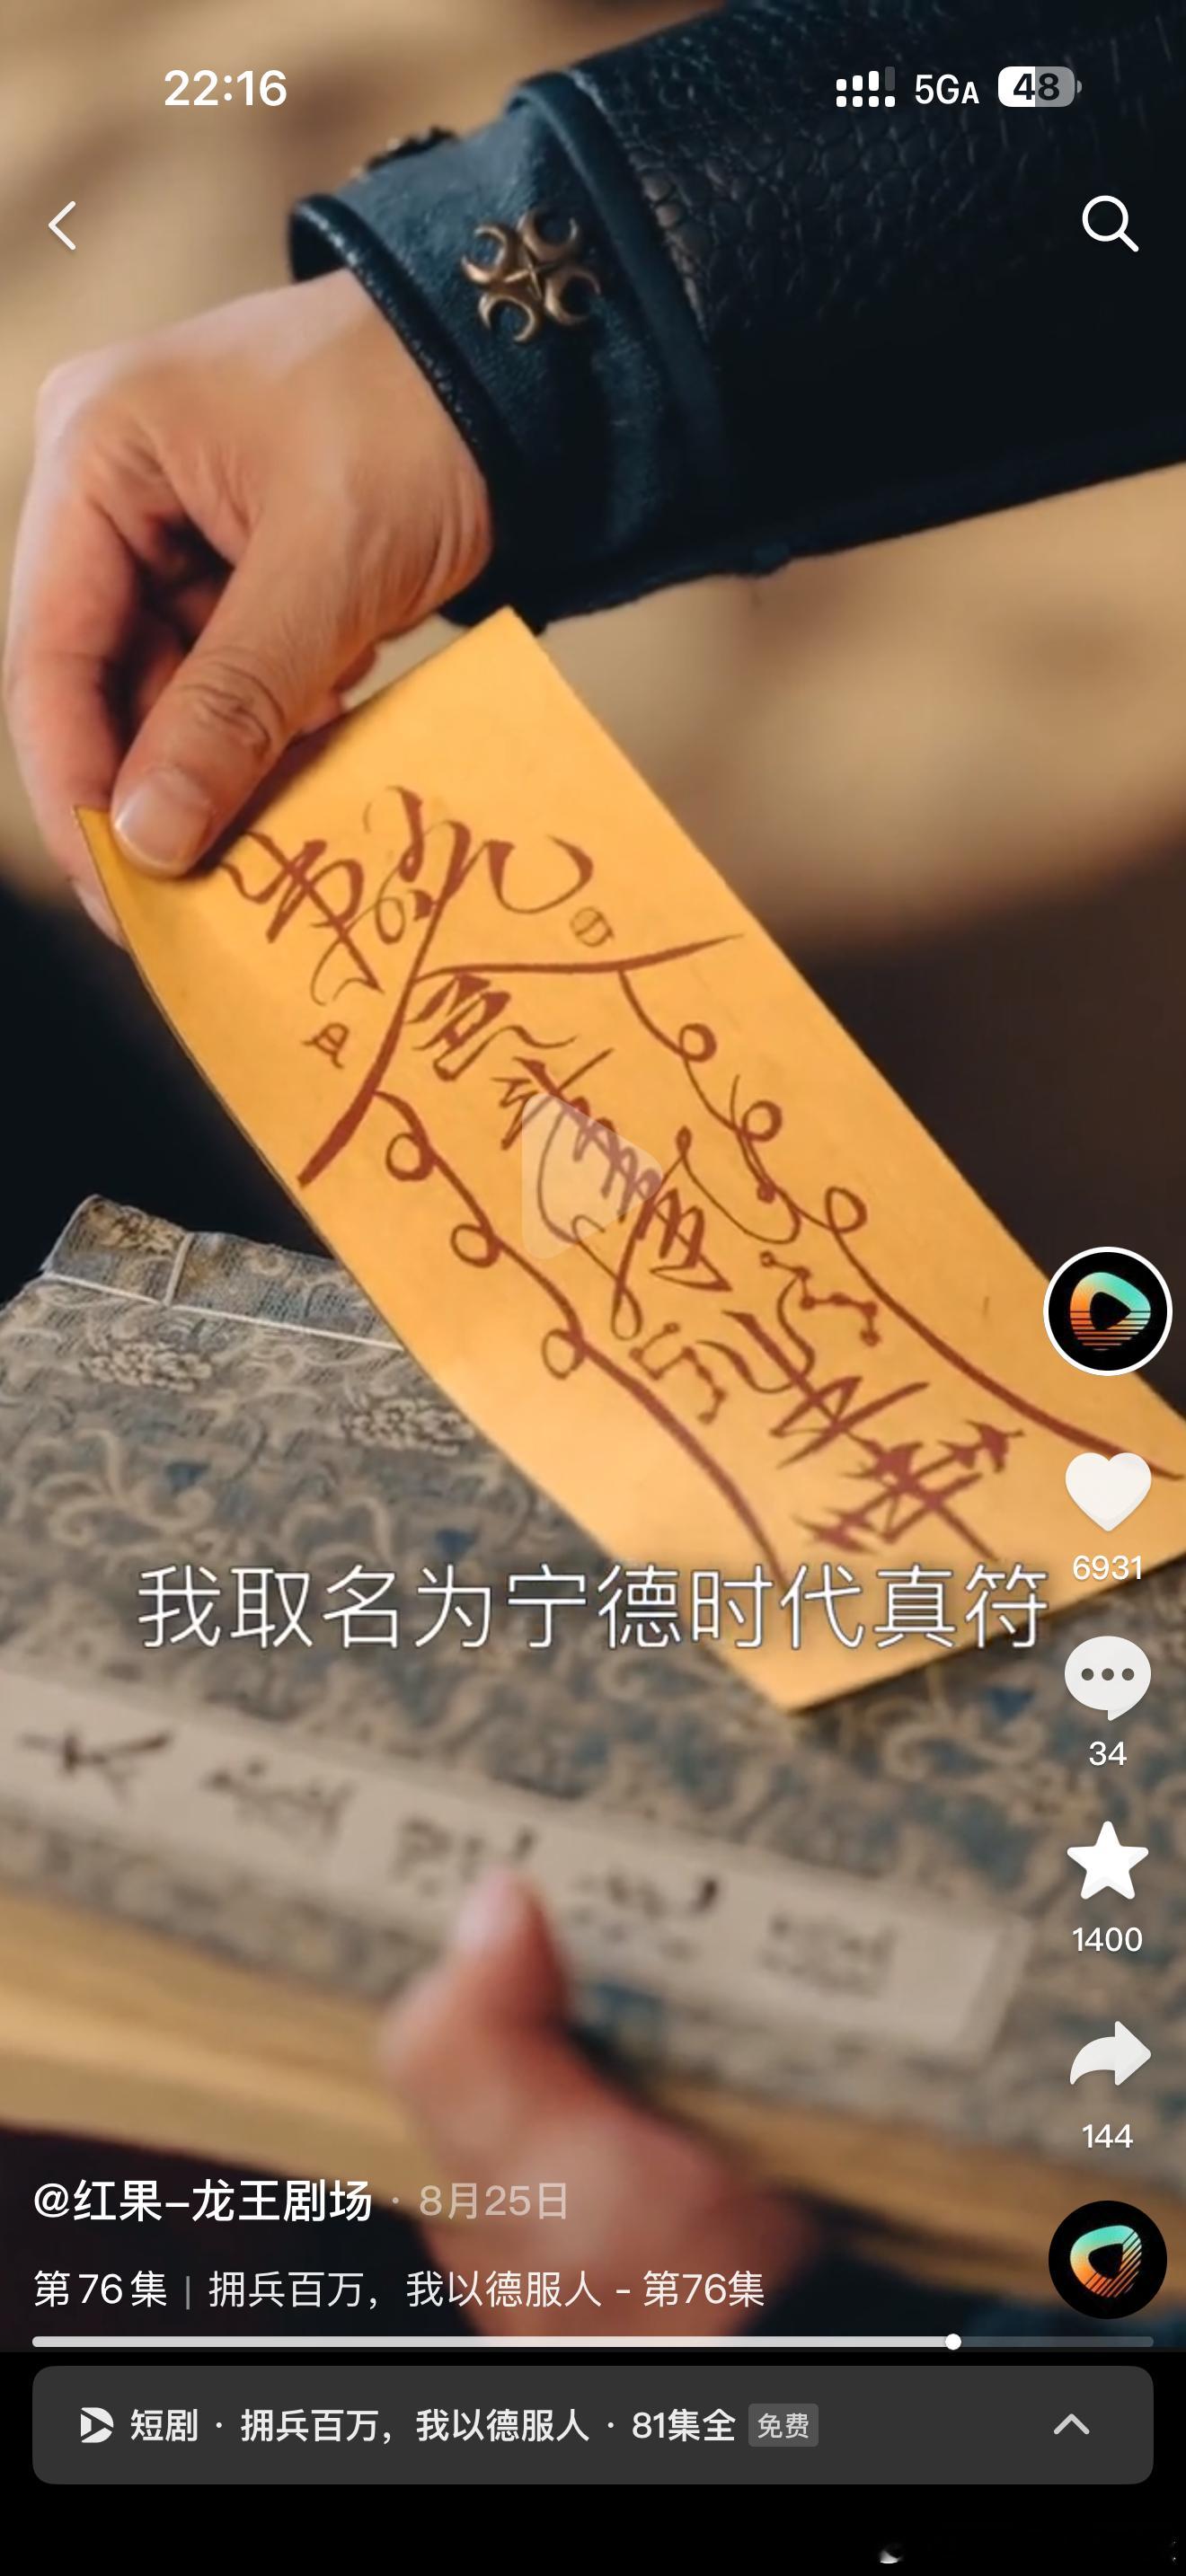 22:16
5GA
48
我取名为宁德时代真符
6931
34
1400
144
@红果-龙王剧场 · 8月25日
第76集 | 拥兵百万，我以德服人 - 第76集
短剧 · 拥兵百万，我以德服人 · 81集全 免费